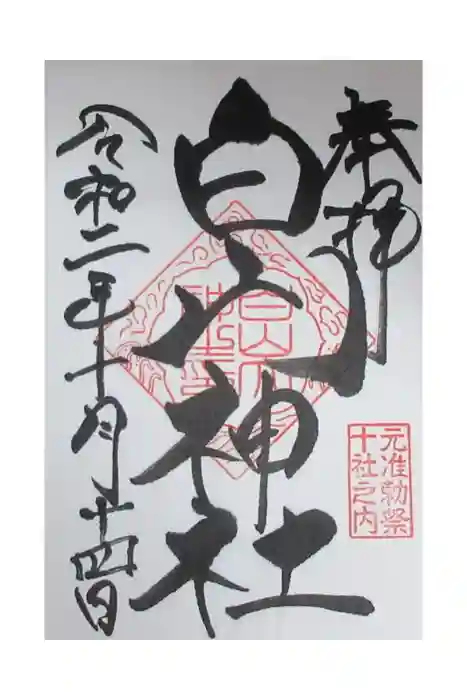 奉拝
元准勅祭
十社之内
白山神社
令和二年十月十四日